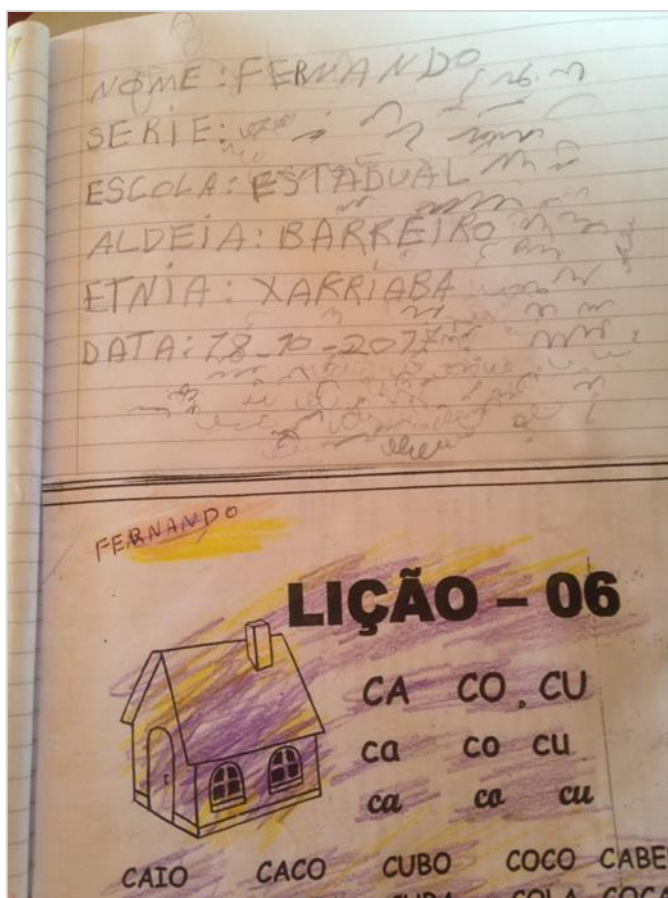 NOME: FERNANDO
SERIE:
ESCOLA: ESTADUAL
ALDEIA: BARREIRO
ETNIA: XARRIABA
DATA: 18-10-2017
FERNANDO
LIÇÃO – 06
CA CO CU
ca co cu
ca co cu
CAIO CACO CUBO COCO CABE
COLA COCA